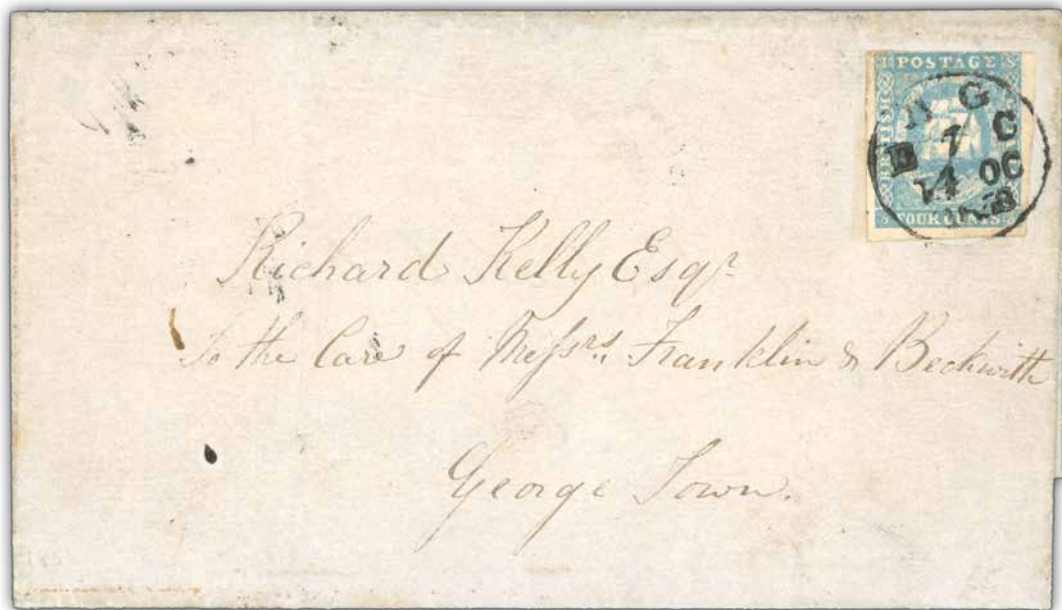 POSTAGE
FOUR CENTS
G
B C
OC
Richard Kelly Esqr.
To the Care of Messrs. Franklin & Beckwith
George Town.